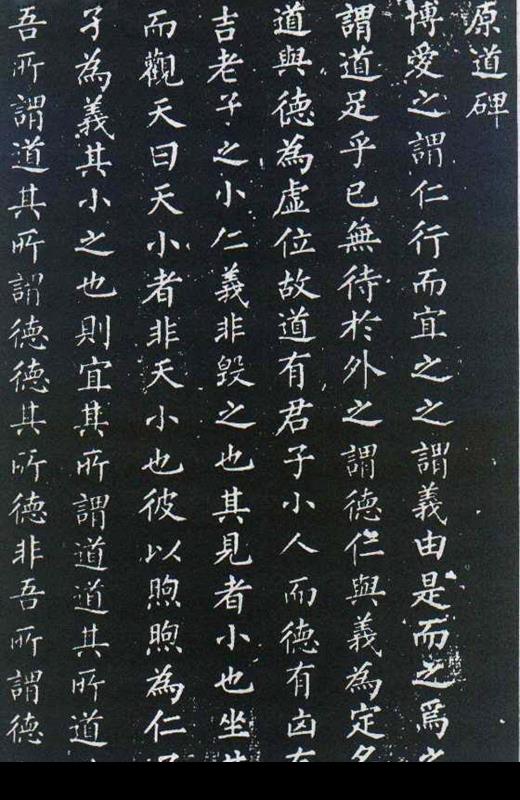 原道碑
博愛之謂仁行而宜之之謂義由是而之焉之
謂道足乎已無待於外之謂德仁與義為定名
道與德為虛位故道有君子小人而德有凶有
吉老子之小仁義非毀之也其見者小也坐井
而觀天曰天小者非天小也彼以煦煦為仁孑
孑為義其小之也則宜其所謂道道其所道
吾所謂道其所謂德德其所德非吾所謂德